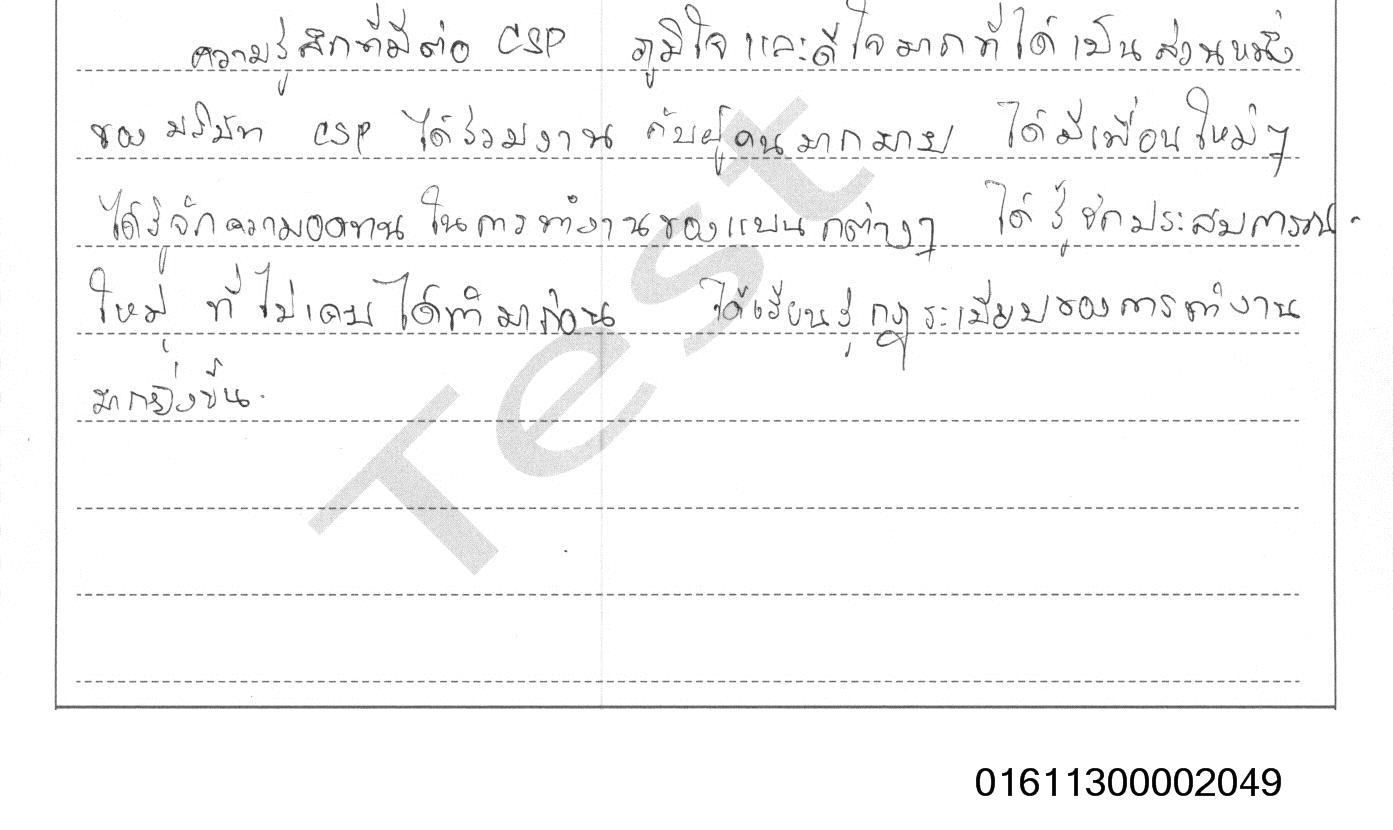 ความรู้สึกที่มีต่อ CSP ภูมิใจและดีใจมากที่ได้เป็นส่วนหนึ่ง
ของ บริษัท CSP ได้ร่วมงาน กับผู้คนมากมาย ได้มีเพื่อนใหม่ๆ
ได้รู้จักความอดทน ในการทำงานของแผนกต่างๆ ได้รู้จักประสบการณ์
ใหม่ๆ ที่ไม่เคยได้ทำมาก่อน ได้เรียนรู้กฎระเบียบของการทำงาน
มากยิ่งขึ้น.
Test
01611300002049